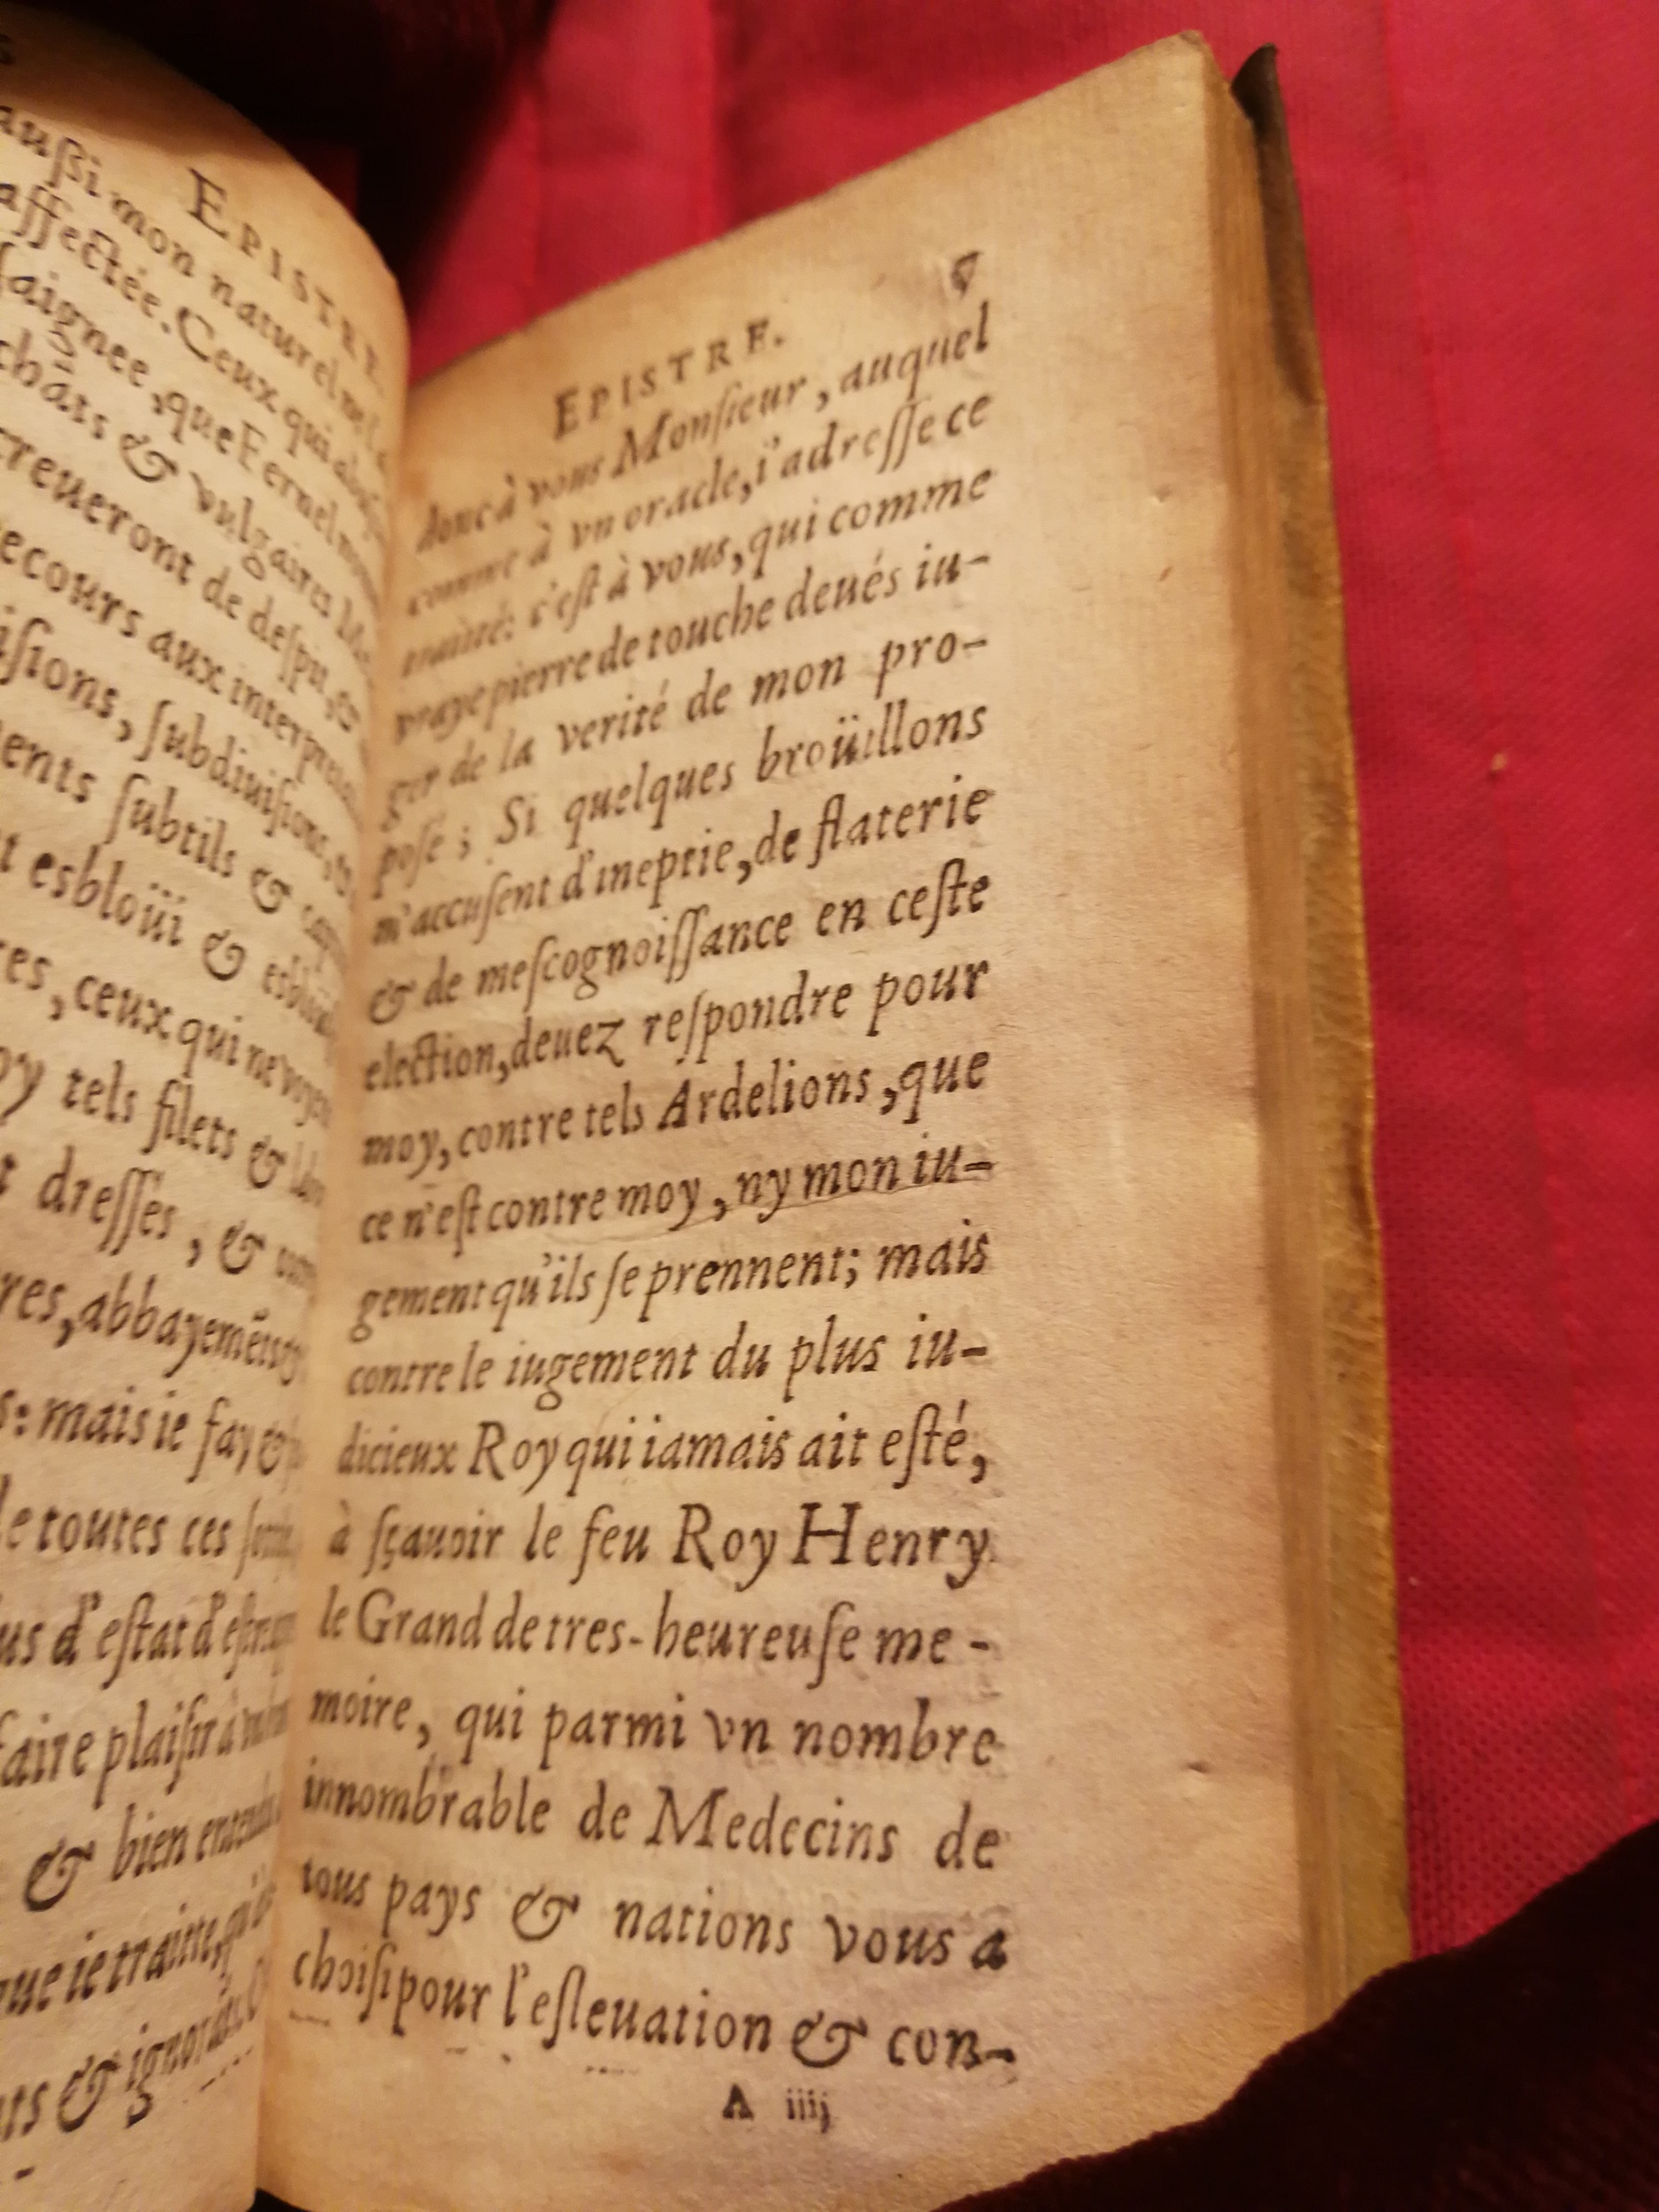 EPISTRE.
aussi mon naturel
affectée. Ceux qui
saignee, que Fernel
chats & vulgaires
creueront de despit, &
recours aux
isions, subdiuisions,
ents subtils &
t esbloüi &
res, ceux qui ne voyent
oy tels filets &
t dressés, &
res, abbayemẽts
s: mais ie fay &
de toutes ces
us d'estat
faire plaisir à
& bien
que ie traitte,
ts &
EPISTRE.
donc à vous Monsieur, auquel
comme à vn oracle, i'adresse ce
traitté: c'est à vous, qui comme
vraye pierre de touche deués iu-
ger de la verité de mon pro-
posé; Si quelques broüillons
m'accusent d'ineptie, de flaterie
& de mescognoissance en ceste
election, deuez respondre pour
moy, contre tels Ardelions, que
ce n'est contre moy, ny mon iu-
gement qu'ils se prennent; mais
contre le iugement du plus iu-
dicieux Roy qui iamais ait esté,
à sçauoir le feu Roy Henry
le Grand de tres-heureuse me-
moire, qui parmi vn nombre
innombrable de Medecins de
tous pays & nations vous a
choisi pour l'esleuation & con-
A iiij